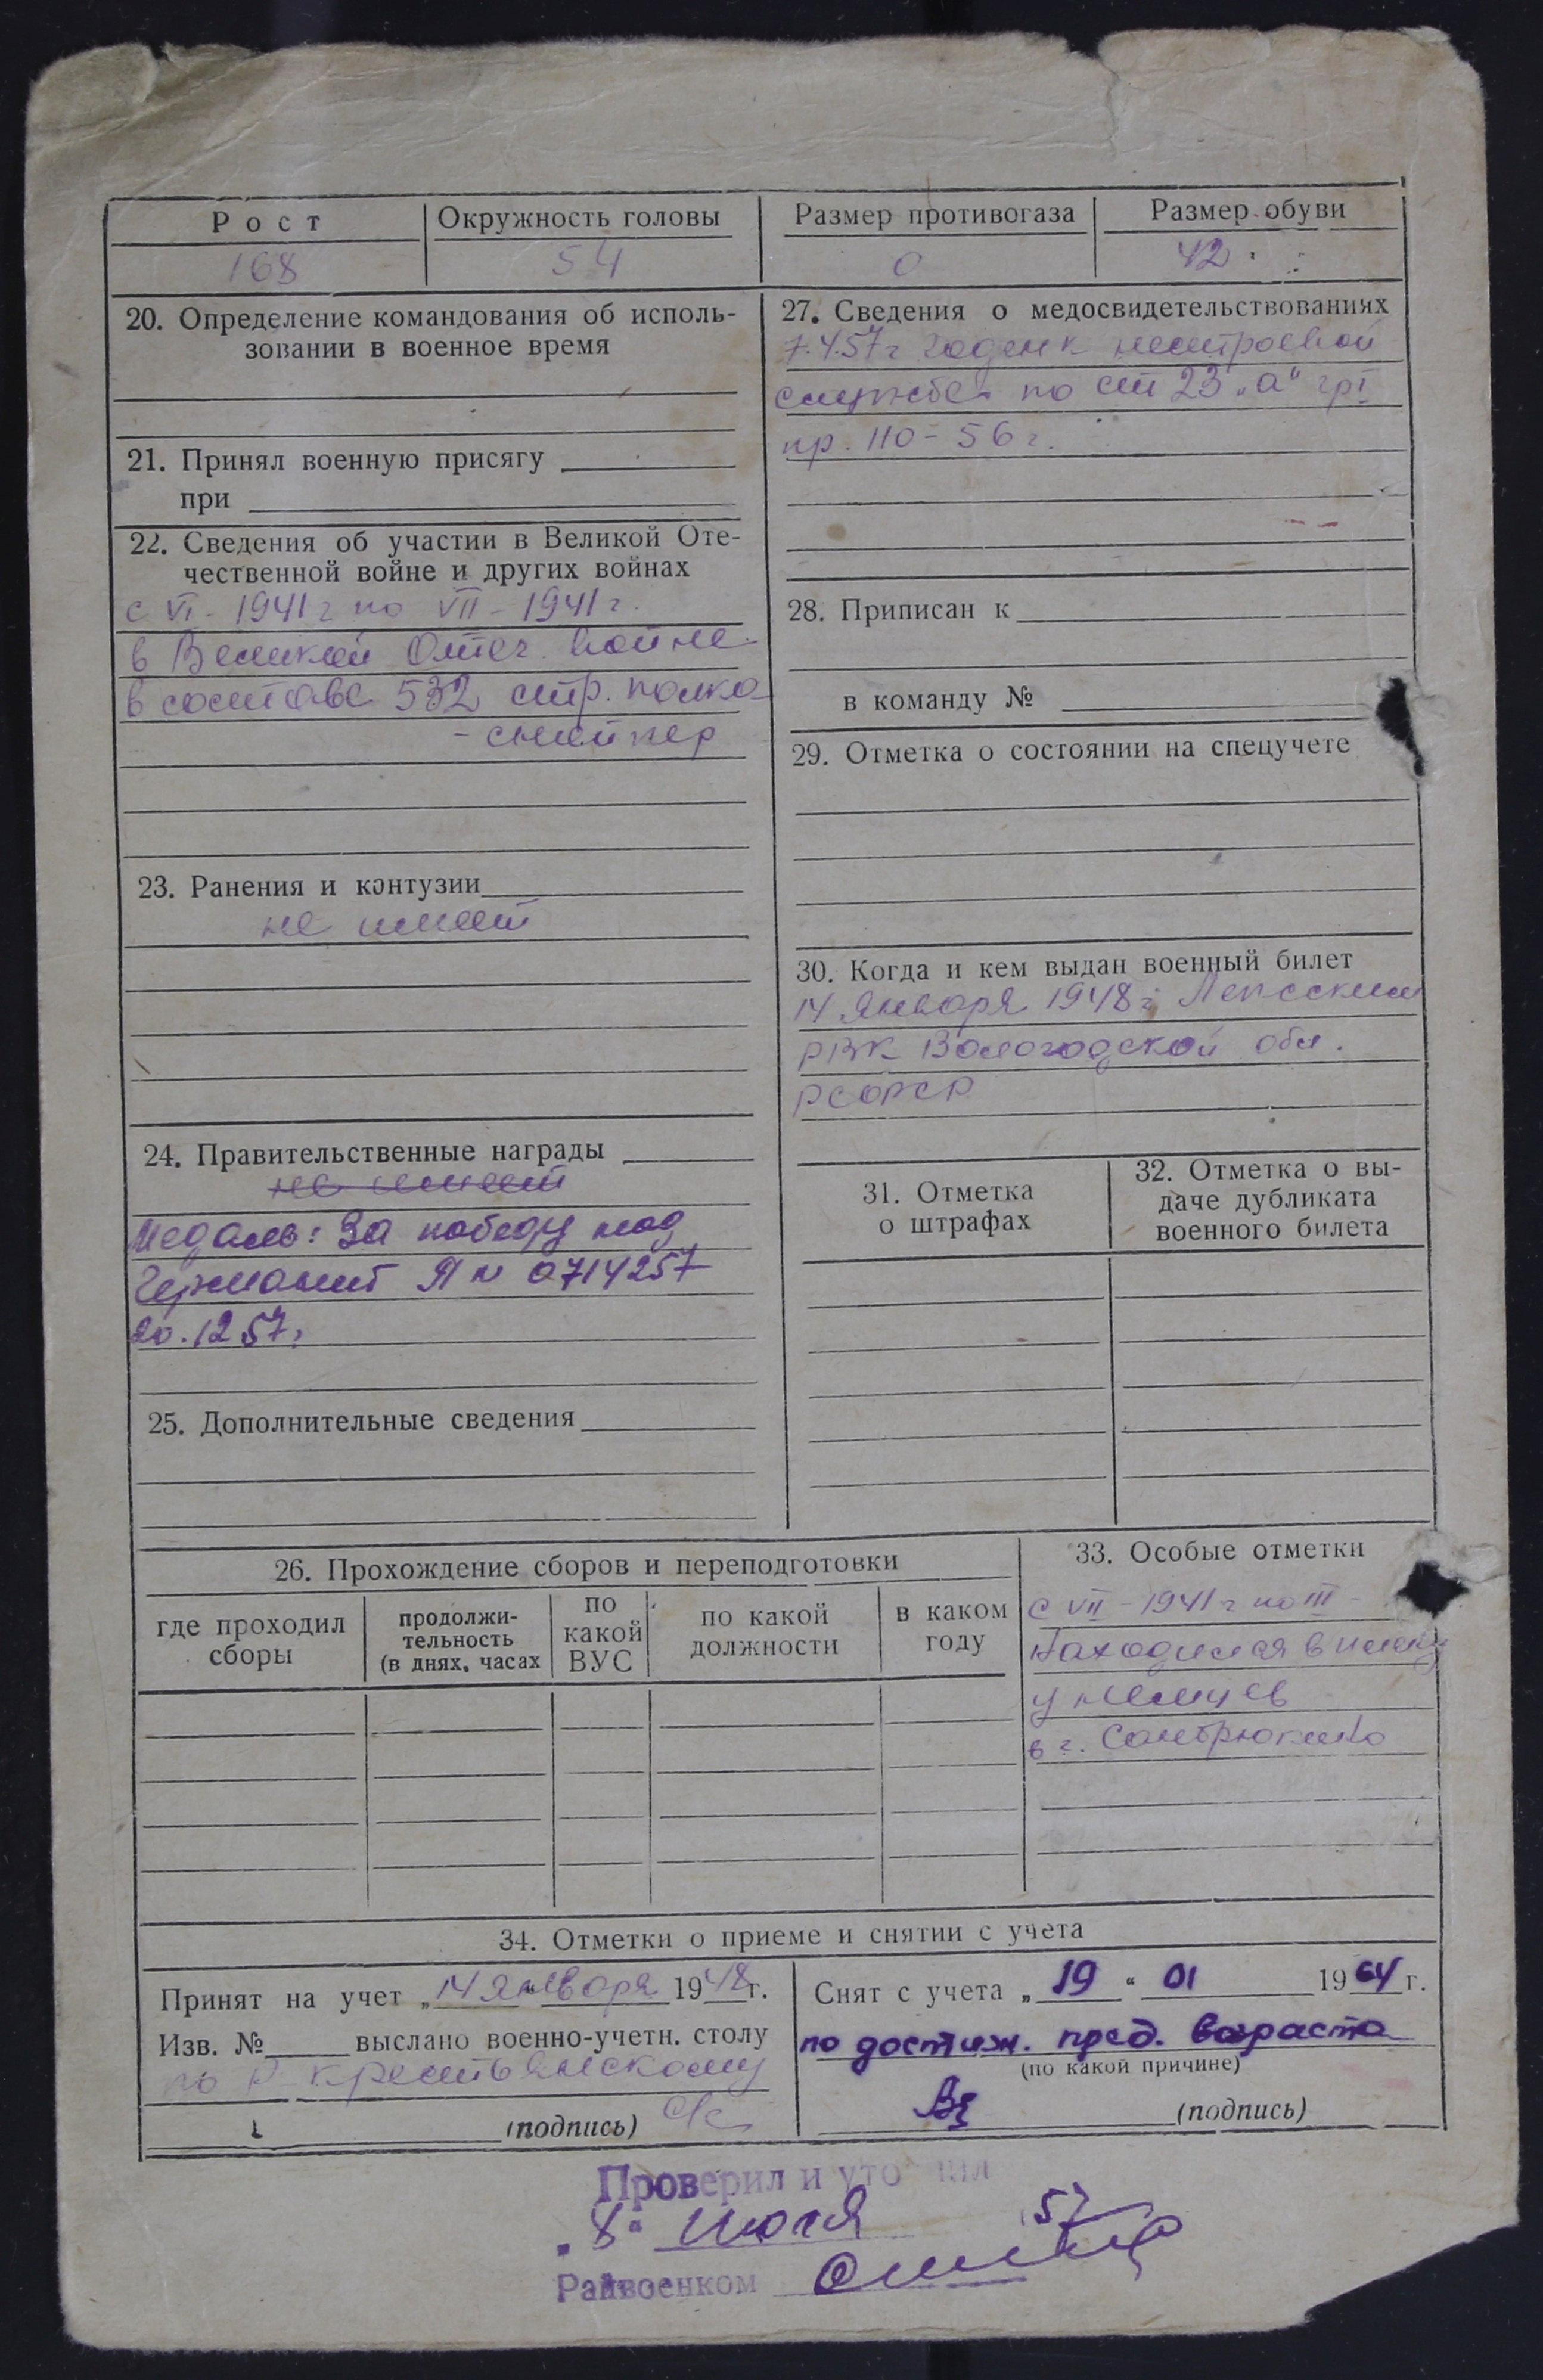 Рост
Окружность головы
Размер противогаза
Размер обуви
168
54
0
42
20. Определение командования об исполь-
зовании в военное время
21. Принял военную присягу
при
22. Сведения об участии в Великой Оте-
чественной войне и других войнах
с VI - 1941 г по VII - 1941 г.
в Великой Отеч. войне
в составе 532 стр. полка
- снайпер
23. Ранения и контузии
не имеет
24. Правительственные награды
не имеет
Медаль: За победу над
Германией Я N 0714257
20.12 57г
25. Дополнительные сведения
27. Сведения о медосвидетельствованиях
7.4.57 г годен к нестроевой
службе по ст 23 „а" гр I
пр. 110 - 56 г.
28. Приписан к
в команду №
29. Отметка о состоянии на спецучете
30. Когда и кем выдан военный билет
14 января 1948 г.
РВК Вологодской обл.
РСФСР
31. Отметка
о штрафах
32. Отметка о вы-
даче дубликата
военного билета
26. Прохождение сборов и переподготовки
где проходил
сборы
продолжи-
тельность
(в днях, часах
по
какой
ВУС
по какой
должности
в каком
году
33. Особые отметки
с VII - 1941 г по III -
находился в плену
у немцев
в г.
34. Отметки о приеме и снятии с учета
Принят на учет „14 " января 1948 г.
Изв. № выслано военно-учетн. столу
по Р-Крестьянскому
(подпись) с/с
Снят с учета „ 19 " 01 1964 г.
по достиж. пред. возраста
(по какой причине)
(подпись)
Проверил и уто нил
„8" июля 57
Райвоенком